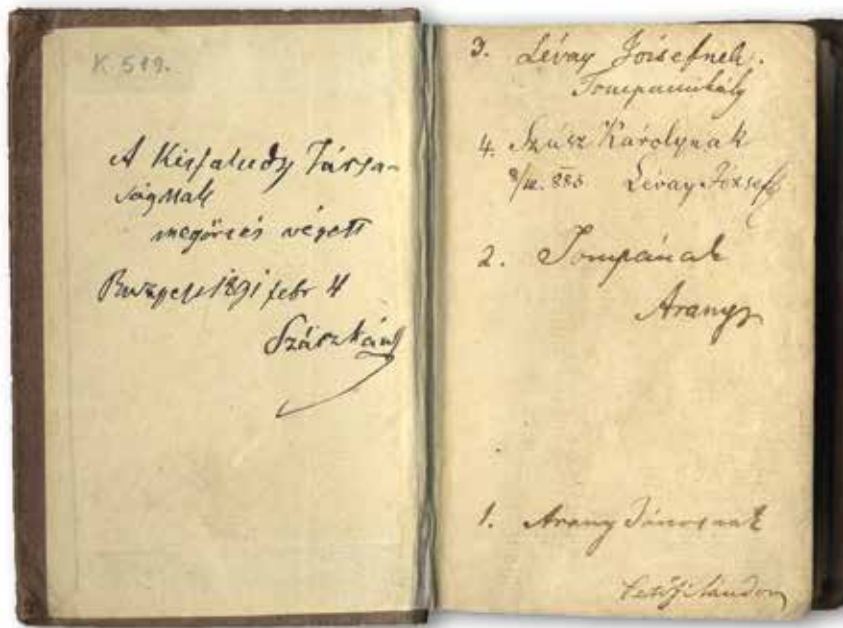 K 519.
A Kisfaludy Társa-
ságnak
megőrzés végett
Budapest 1891 febr 4
Szász Károly
3. Lévay Józsefnek.
Tompa Mihály
4. Szász Károlynak
885 Lévay József
2. Tompának
Arany
1. Arany Jánosnak
Petőfi Sándor